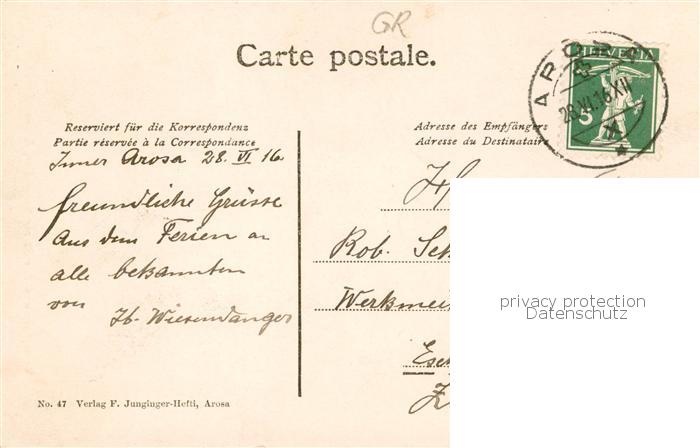 GR
Carte postale.
HELVETIA
5
AROSA
28.VI.16.XII
Reserviert für die Korrespondenz
Partie réservée à la Correspondance
Adresse des Empfängers
Adresse du Destinataire
Inner Arosa 28. VI 16
freundliche Grüsse
aus dem Ferien an
alle bekannten
von
Hb. Wiesendanger
Rob. Sch
Werkmei
privacy protection
Datenschutz
No. 47 Verlag F. Junginger-Hefti, Arosa